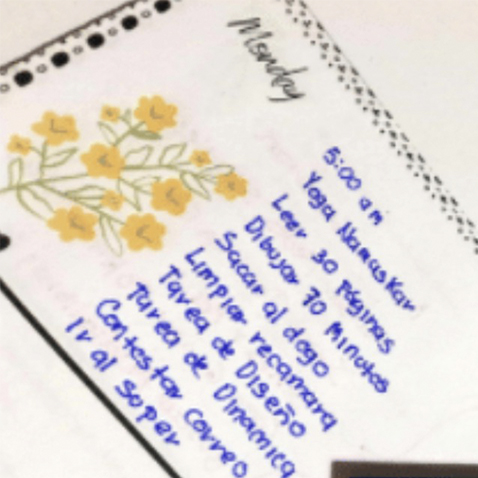 Monday
5:00 am
Yoga Namaskar
Leer 30 Páginas
Dibujar 70 Minutos
Sacar al dogo
Limpiar recamara
Tarea de Diseño
Tarea de Dinamica
Contestar correo
Ir al super